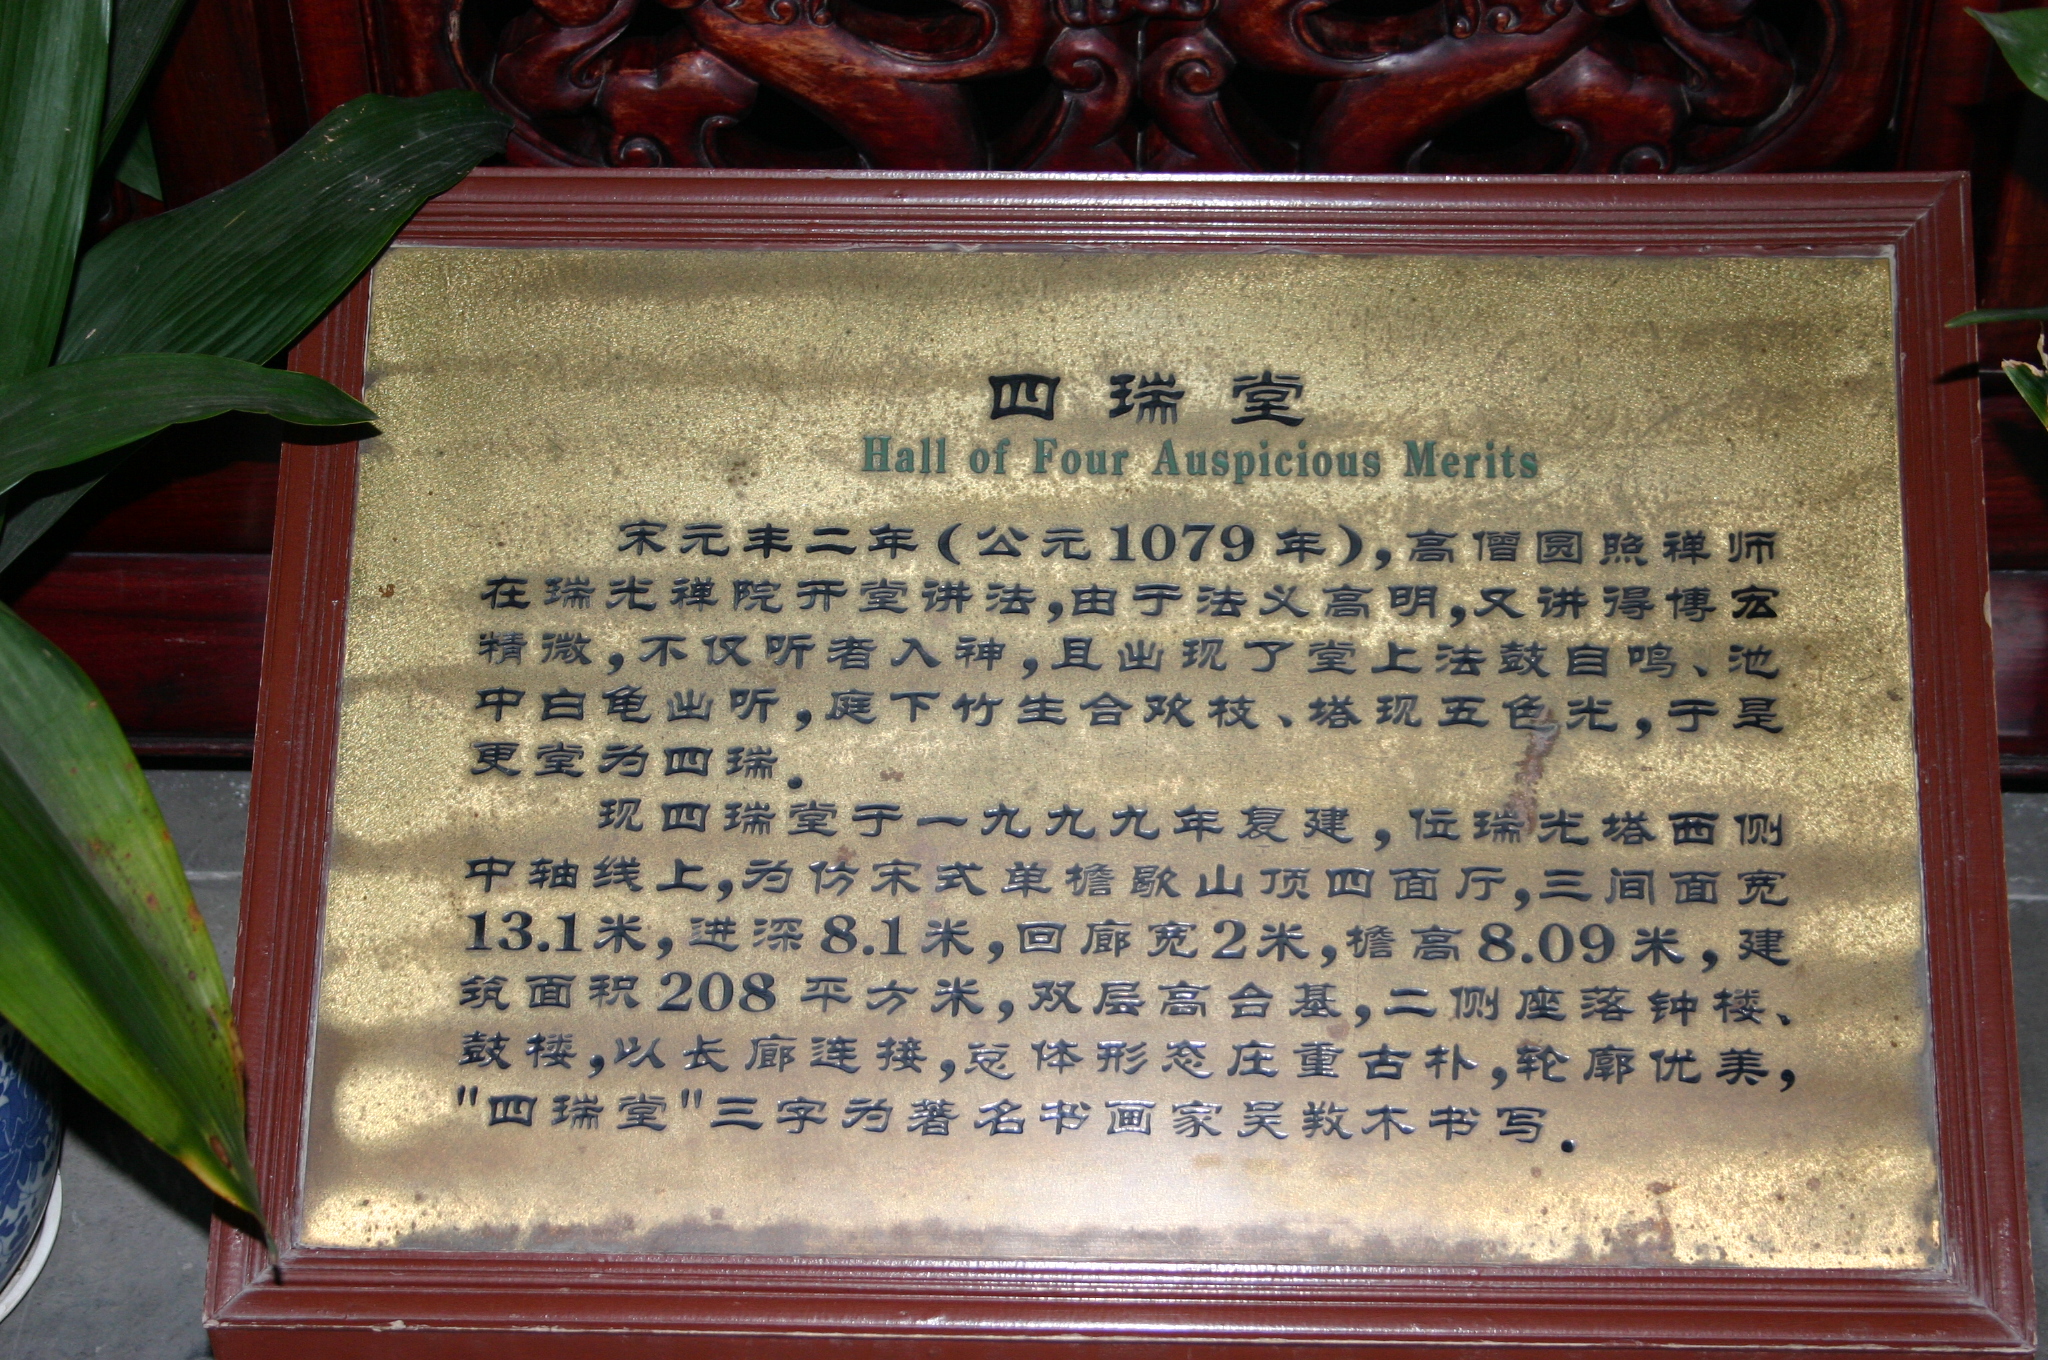 四瑞堂
Hall of Four Auspicious Merits
宋元丰二年(公元1079年),高僧圆照禅师
在瑞光禅院开堂讲法,由于法义高明,又讲得博宏
精微,不仅听者入神,且出现了堂上法鼓自鸣、池
中白龟出听,庭下竹生合欢枝、塔现五色光,于是
更堂为四瑞.
现四瑞堂于一九九九年复建,位瑞光塔西侧
中轴线上,为仿宋式单檐歇山顶四面厅,三间面宽
13.1米,进深8.1米,回廊宽2米,檐高8.09米,建
筑面积208平方米,双层高台基,二侧座落钟楼、
鼓楼,以长廊连接,总体形态庄重古朴,轮廓优美,
"四瑞堂"三字为著名书画家吴敦木书写.